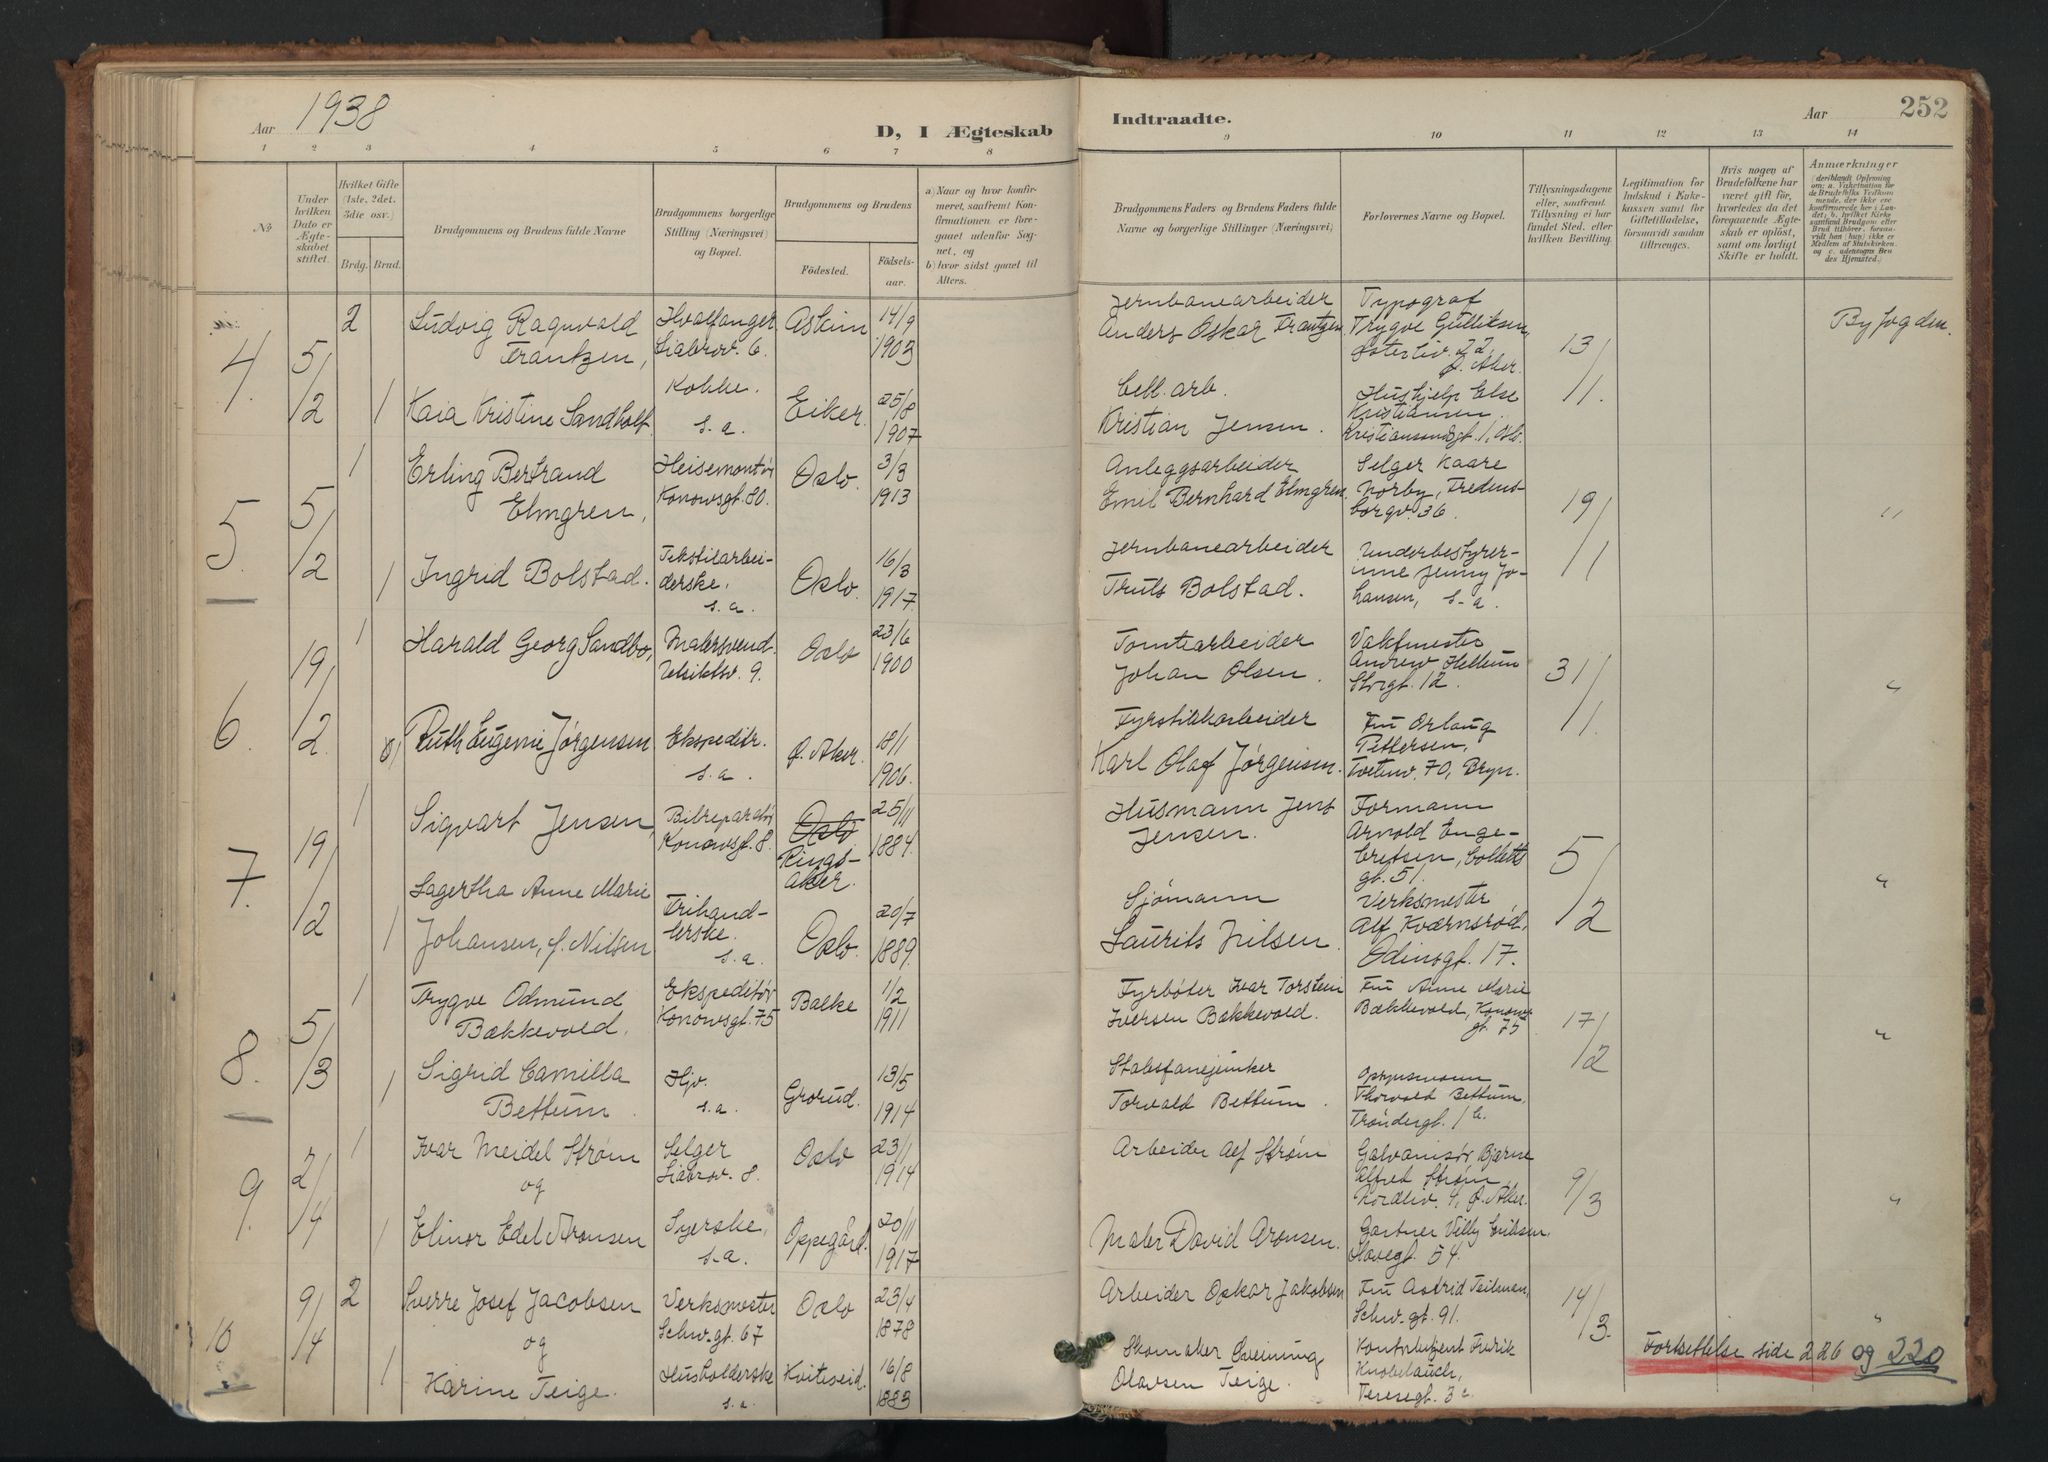 Aar 1938
D, I Ægteskab
Indtraadte.
Aar 252
1 2 3 4 5 6 7 8 9 10 11 12 13 14
No
Under hvilken Dato er Ægteskabet stiftet.
Hvilket Gifte (1ste, 2det, 3die osv.)
Brdg. Brud.
Brudgommens og Brudens fulde Navne
Brudgommens borgerlige Stilling (Næringsvei) og Bopæl.
Brudgommens og Brudens
Fødested.
Fødselsaar.
a) Naar og hvor konfirmeret, saafremt Konfirmationen er foregaaet udenfor Sognet, og
b) hvor sidst gaaet til Alters.
Brudgommens Faders og Brudens Faders fulde Navne og borgerlige Stillinger (Næringsvei)
Forlovernes Navne og Bopæl.
Tillysningsdagene eller, saafremt Tillysning ei har fundet Sted, efter hvilken Bevilling.
Legitimation for Indskud i Enkekassen samt for Giftetilladelse, forsaavidt saadan tiltrænges.
Hvis nogen af Brudefolkene har været gift før, hvorledes da det foregaaende Ægteskab er opløst, samt om lovligt Skifte er holdt.
Anmærkninger (deriblandt Oplysning om: a. Vakcination for de Brudefolks Vedkommende, der ikke ere konfirmerede her i Landet; b. hvilket Kirkesamfund Brudgom eller Brud tilhører, forsaavidt han (hun) ikke er Medlem af Statskirken, og c. udensogns Brudes Hjemsted.)
4. 5/2 2 Ludvig Ragnvald Frantzen, Hvalfanger Liabrov. 6. Askim 14/9 1903 Jernbanearbeider Anders Oskar Frantzen Typograf Trygve Gulliksen, Østerliv. 22, Ø. Aker. 13/1. Byfogden.
1 Kaia Kristine Sandholt. Kokke. s. a. Eiker. 25/8 1907 Cell. arb. Kristian Jensen. Hushjelp Else Kristiansen, Kristiansundsgt. 1, Oslo.
5. 5/2 1 Erling Bertrand Elmgren, Heisemontør Konowsgt. 80. Oslo. 3/3 1913 Anleggsarbeider Emil Bernhard Elmgren. Selger Kaare Norby, Fredensborgv. 36. 19/1 "
1 Ingrid Bolstad. Tekstilarbeiderske, s. a. Oslo. 16/3 1917. Jernbanearbeider Truls Bolstad. Underbestyrerinne Jenny Johansen, s. a.
6. 19/2 1 Harald Georg Sandbo, Malersvend. Utsiktsv. 9. Oslo 23/6 1900 Tomtearbeider Johan Olsen. Vaktmester Andrew Hellum Storgt. 12. 31/1. "
1 Ruth Eugenie Jørgensen Ekspeditr. s. a. Ø. Aker. 18/1 1906. Fyrstikkarbeider Karl Olaf Jørgensen. Fru Orlaug Pettersen, Tvetenv. 70, Bryn.
7. 19/2 1 Sigvart Jensen, Bilreparatør Konowsgt. 8. Oslo Ringsaker. 25/11 1884. Husmann Jens Jensen. Formann Arnold Engebretsen, Colletts gt. 51. 5/2 "
1 Lagertha Anne Marie Johansen, f. Nilsen Frihandlerske. s. a. Oslo. 20/7 1889. Sjømann Laurits Nilsen. Verksmester Alf Kværnsrød, Odinsgt. 17.
8. 5/3 1 Trygve Odmund Bækkevold. Ekspeditør Konowsgt. 75 Balke 1/2 1911 Fyrbøter Ivar Torstein Iversen Bækkevold. Fru Anne Marie Bækkevold, Konowsgt. 75 17/2 "
1 Sigrid Camilla Bettum. Hjv. s. a. Grorud. 13/5 1914 Stabsfanejunker Torvald Bettum. Opsynsmann Thorvald Bettum, Trøndergt. 1 b.
9. 2/4 1 Ivar Meidel Strøm og Selger Liabrov. 8. Oslo 23/1 1914 Arbeider Alf Strøm Galvanisør Bjarne Alfret Strøm, Nordliv. 4, Ø. Aker. 9/3 "
1 Elinor Edel Aronsen Syerske, s. a. Oppegård. 20/11 1917 Maler David Aronsen. Gartner Villy Eriksen, Slovegt. 54.
10 9/4 2 Sverre Josef Jacobsen og Verksmester Schw. gt. 67 Oslo 23/4 1878 Arbeider Oskar Jakobsen Fru Astrid Teilman, Schw. gt. 91. 14/3. "
1 Karine Teige. Husholderske s. a. Kviteseid. 16/8 1883 Skomaker Gveinung Olavsen Teige. Kontorbetjent Fredrik Knobelauch, Teresegt. 3 c
Fortsettelse side 226 og 220